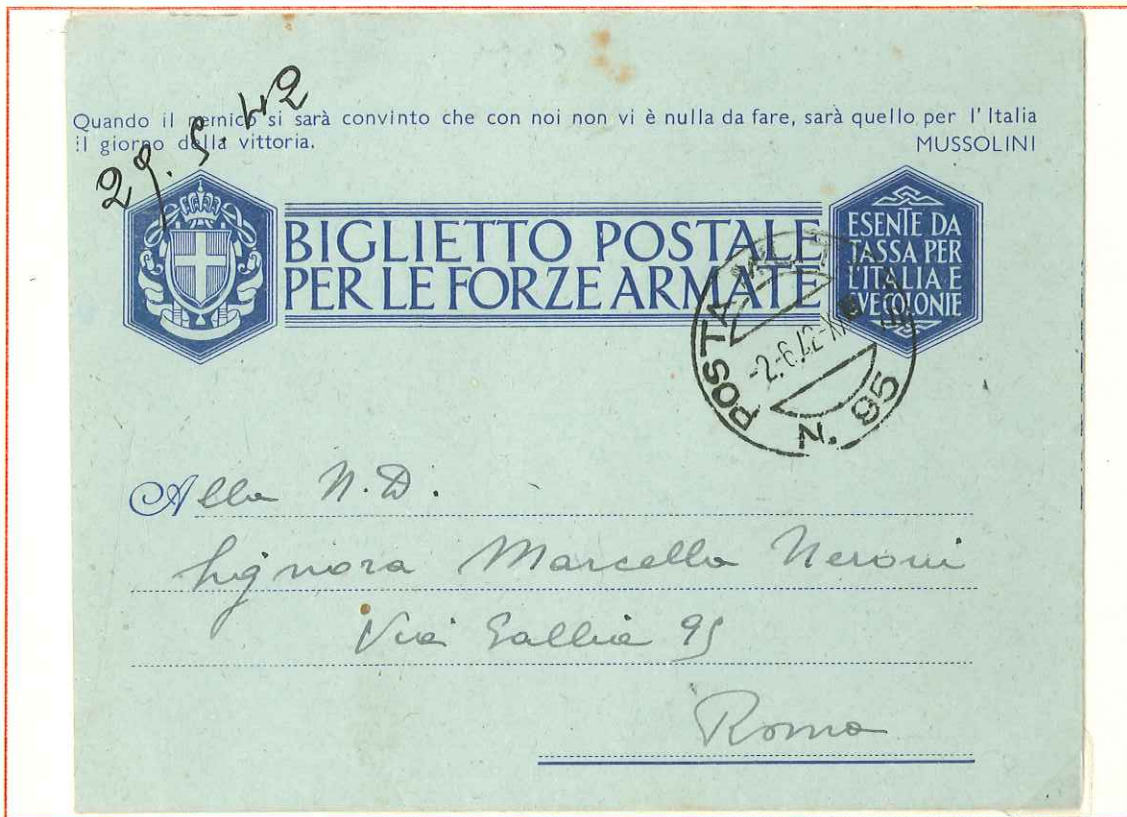 29.5.42
Quando il nemico si sarà convinto che con noi non vi è nulla da fare, sarà quello per l'Italia
il giorno della vittoria.
MUSSOLINI
BIGLIETTO POSTALE
PER LE FORZE ARMATE
ESENTE DA
TASSA PER
L'ITALIA E
SVE COLONIE
POSTA
-2.6.42-X
N. 95
Alla N.D.
Signora Marcella Neroni
Via Gallia 95
Roma